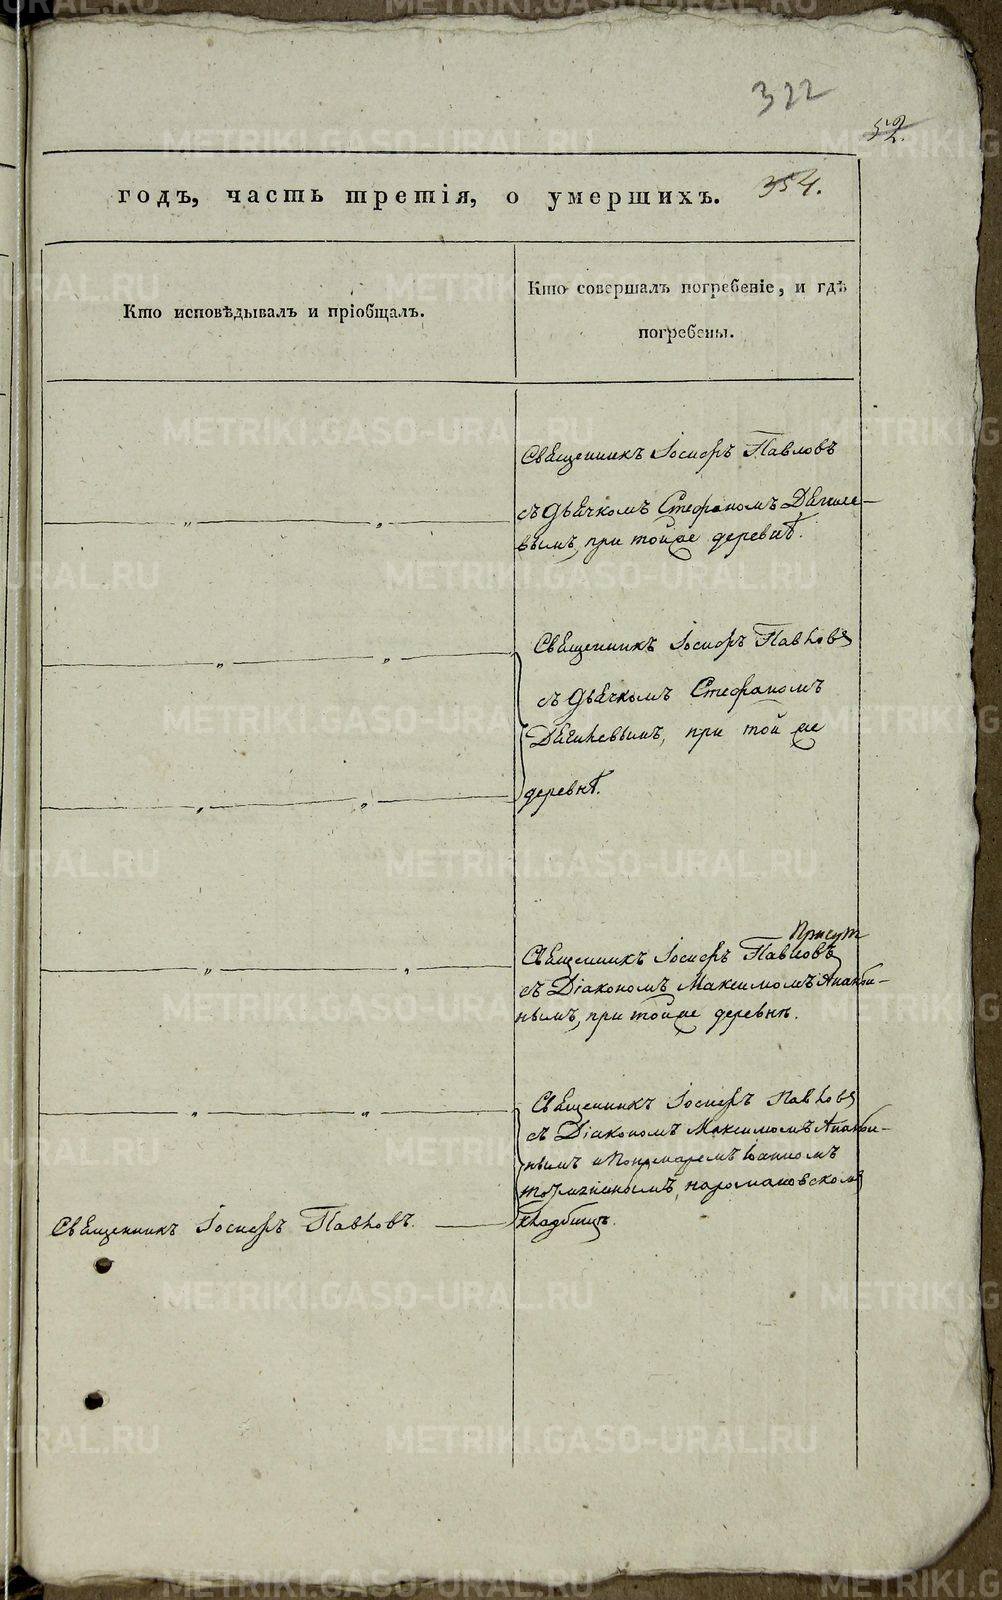 322
52.
годъ, часть третія, о умершихъ. 354.
Кто исповѣдывалъ и пріобщалъ.
Кто совершалъ погребеніе, и гдѣ
погребены.
Священникъ Іосифъ Павловъ
съ дьячкомъ Стефаномъ Дягиле-
вымъ, при тойже деревнѣ.
Священникъ Іосифъ Павловъ
съ дьячкомъ Стефаномъ
Дягилевымъ, при той же
деревнѣ.
Священникъ Іосифъ Павловъ
съ Діакономъ Максимомъ
нымъ, при тойже деревнѣ.
Священникъ Іосифъ Павловъ
съ Діакономъ Максимомъ
нымъ и Пономаремъ Іоанномъ
кладбищѣ.
Священникъ Іосифъ Павловъ.
METRIKI.GASO-URAL.RU